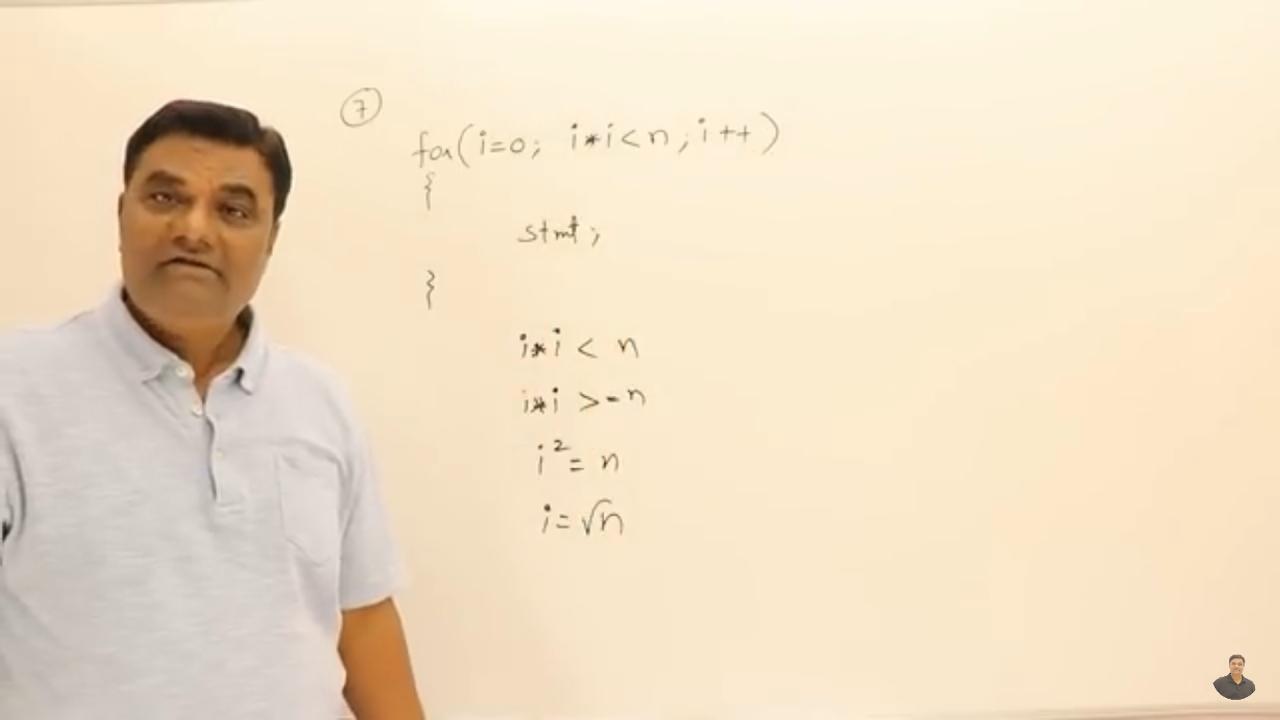 7
for(i=0; i*i<n; i++)
{
stmt;
}
i*i < n
i*i >=n
i²= n
i=√n